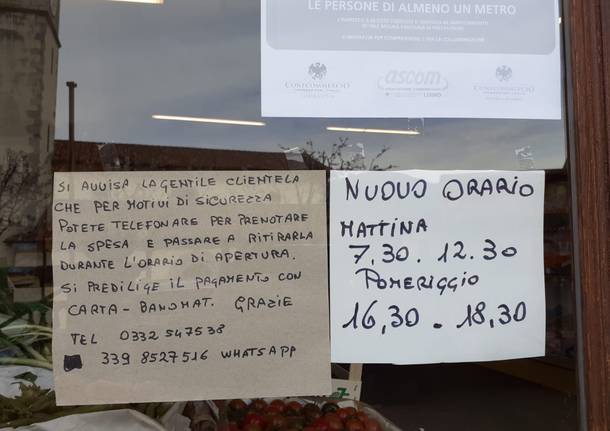 LE PERSONE DI ALMENO UN METRO
CONFCOMMERCIO
ascom
LUINO
CONFCOMMERCIO
SI AVVISA LA GENTILE CLIENTELA
CHE PER MOTIVI DI SICUREZZA
POTETE TELEFONARE PER PRENOTARE
LA SPESA E PASSARE A RITIRARLA
DURANTE L'ORARIO DI APERTURA.
SI PREDILIGE IL PAGAMENTO CON
CARTA - BANOMAT. GRAZIE
TEL 0332 547538
339 8527516 WHATSAPP
NUOVO ORARIO
MATTINA
7,30. 12.30
POMERIGGIO
16,30 - 18,30